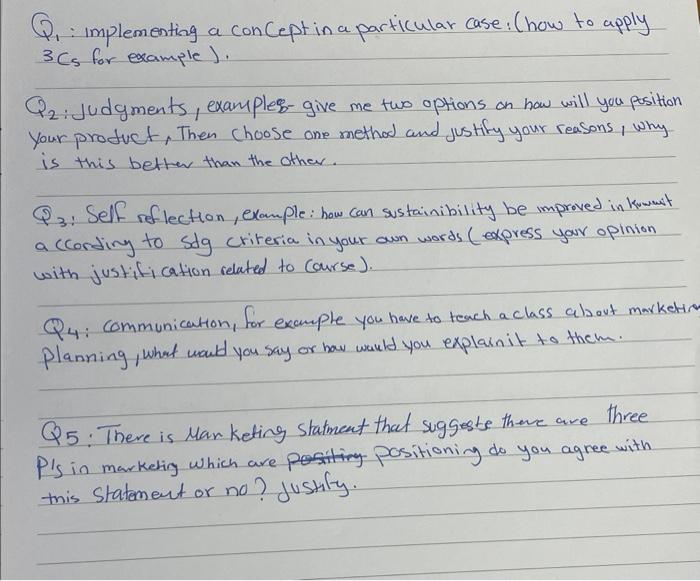 Q1: implementing a concept in a particular case: (how to apply
3Cs for example).
Q2: Judgments, examples- give me two options on how will you position
your product, Then choose one method and justify your reasons, why
is this better than the other.
Q3: Self reflection, example: how can sustainibility be improved in Kuwait
according to sdg criteria in your own words (express your opinion
with justification related to course).
Q4: communication, for example you have to teach a class about marketing
planning, what would you say or how would you explain it to them.
Q5: There is Marketing Statment that suggests there are three
P's in marketing which are positioning do you agree with
this statement or no? Justify.